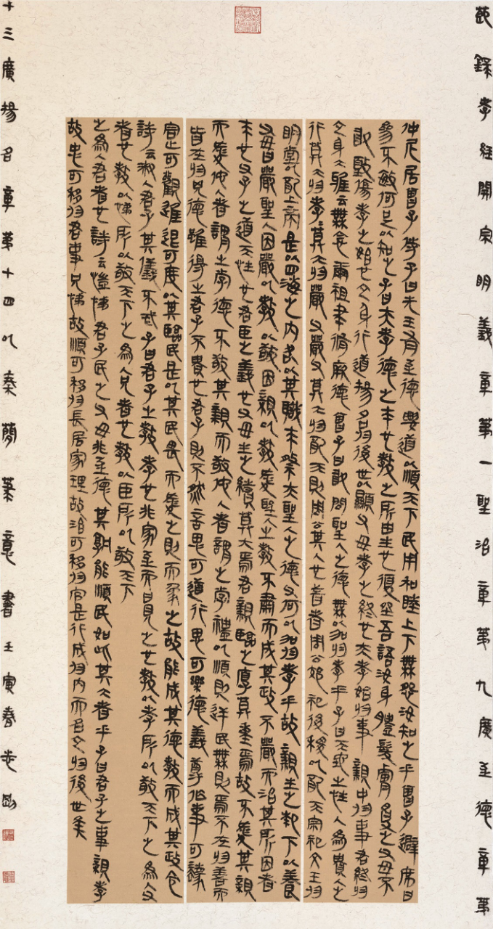 節錄孝經開宗明義章第一聖治章第九廣至德章第
仲尼居曾子侍子曰先王有至德要道以順天下民用和睦上下無怨汝知之乎曾子避席曰
參不敏何足以知之子曰夫孝德之本也教之所由生也復坐吾語汝身體髮膚受之父母不
敢毀傷孝之始也立身行道揚名於後世以顯父母孝之終也夫孝始於事親中於事君終於
立身大雅云無念爾祖聿脩厥德曾子曰敢問聖人之德無以加於孝乎子曰天地之性人為貴人之
行莫大於孝孝莫大於嚴父嚴父莫大於配天則周公其人也昔者周公郊祀后稷以配天宗祀文王於
明堂以配上帝是以四海之內各以其職來祭夫聖人之德又何以加於孝乎故親生之膝下以養
父母日嚴聖人因嚴以教敬因親以教愛聖人之教不肅而成其政不嚴而治其所因者
本也父子之道天性也君臣之義也父母生之續莫大焉君親臨之厚莫重焉故不愛其親
而愛他人者謂之悖德不敬其親而敬他人者謂之悖禮以順則逆民無則焉不在於善而
皆在於凶德雖得之君子不貴也君子則不然言思可道行思可樂德義尊作事可法
容止可觀進退可度以其臨民是以其民畏而愛之則而象之故能成其德教而成其政令
詩云淑人君子其儀不忒子曰君子之教孝也非家至而日見之也教以孝所以敬天下之為人父
者也教以悌所以敬天下之為人兄者也教以臣所以敬天下
之為人君者也詩云愷悌君子民之父母非至德其孰能順民如此其大者乎子曰君子之事親孝
故忠可移於君事兄悌故順可移於長居家理故治可移於官是以行成於內而名立於後世矣
十三廣揚名章第十四以秦簡筆意書壬寅春